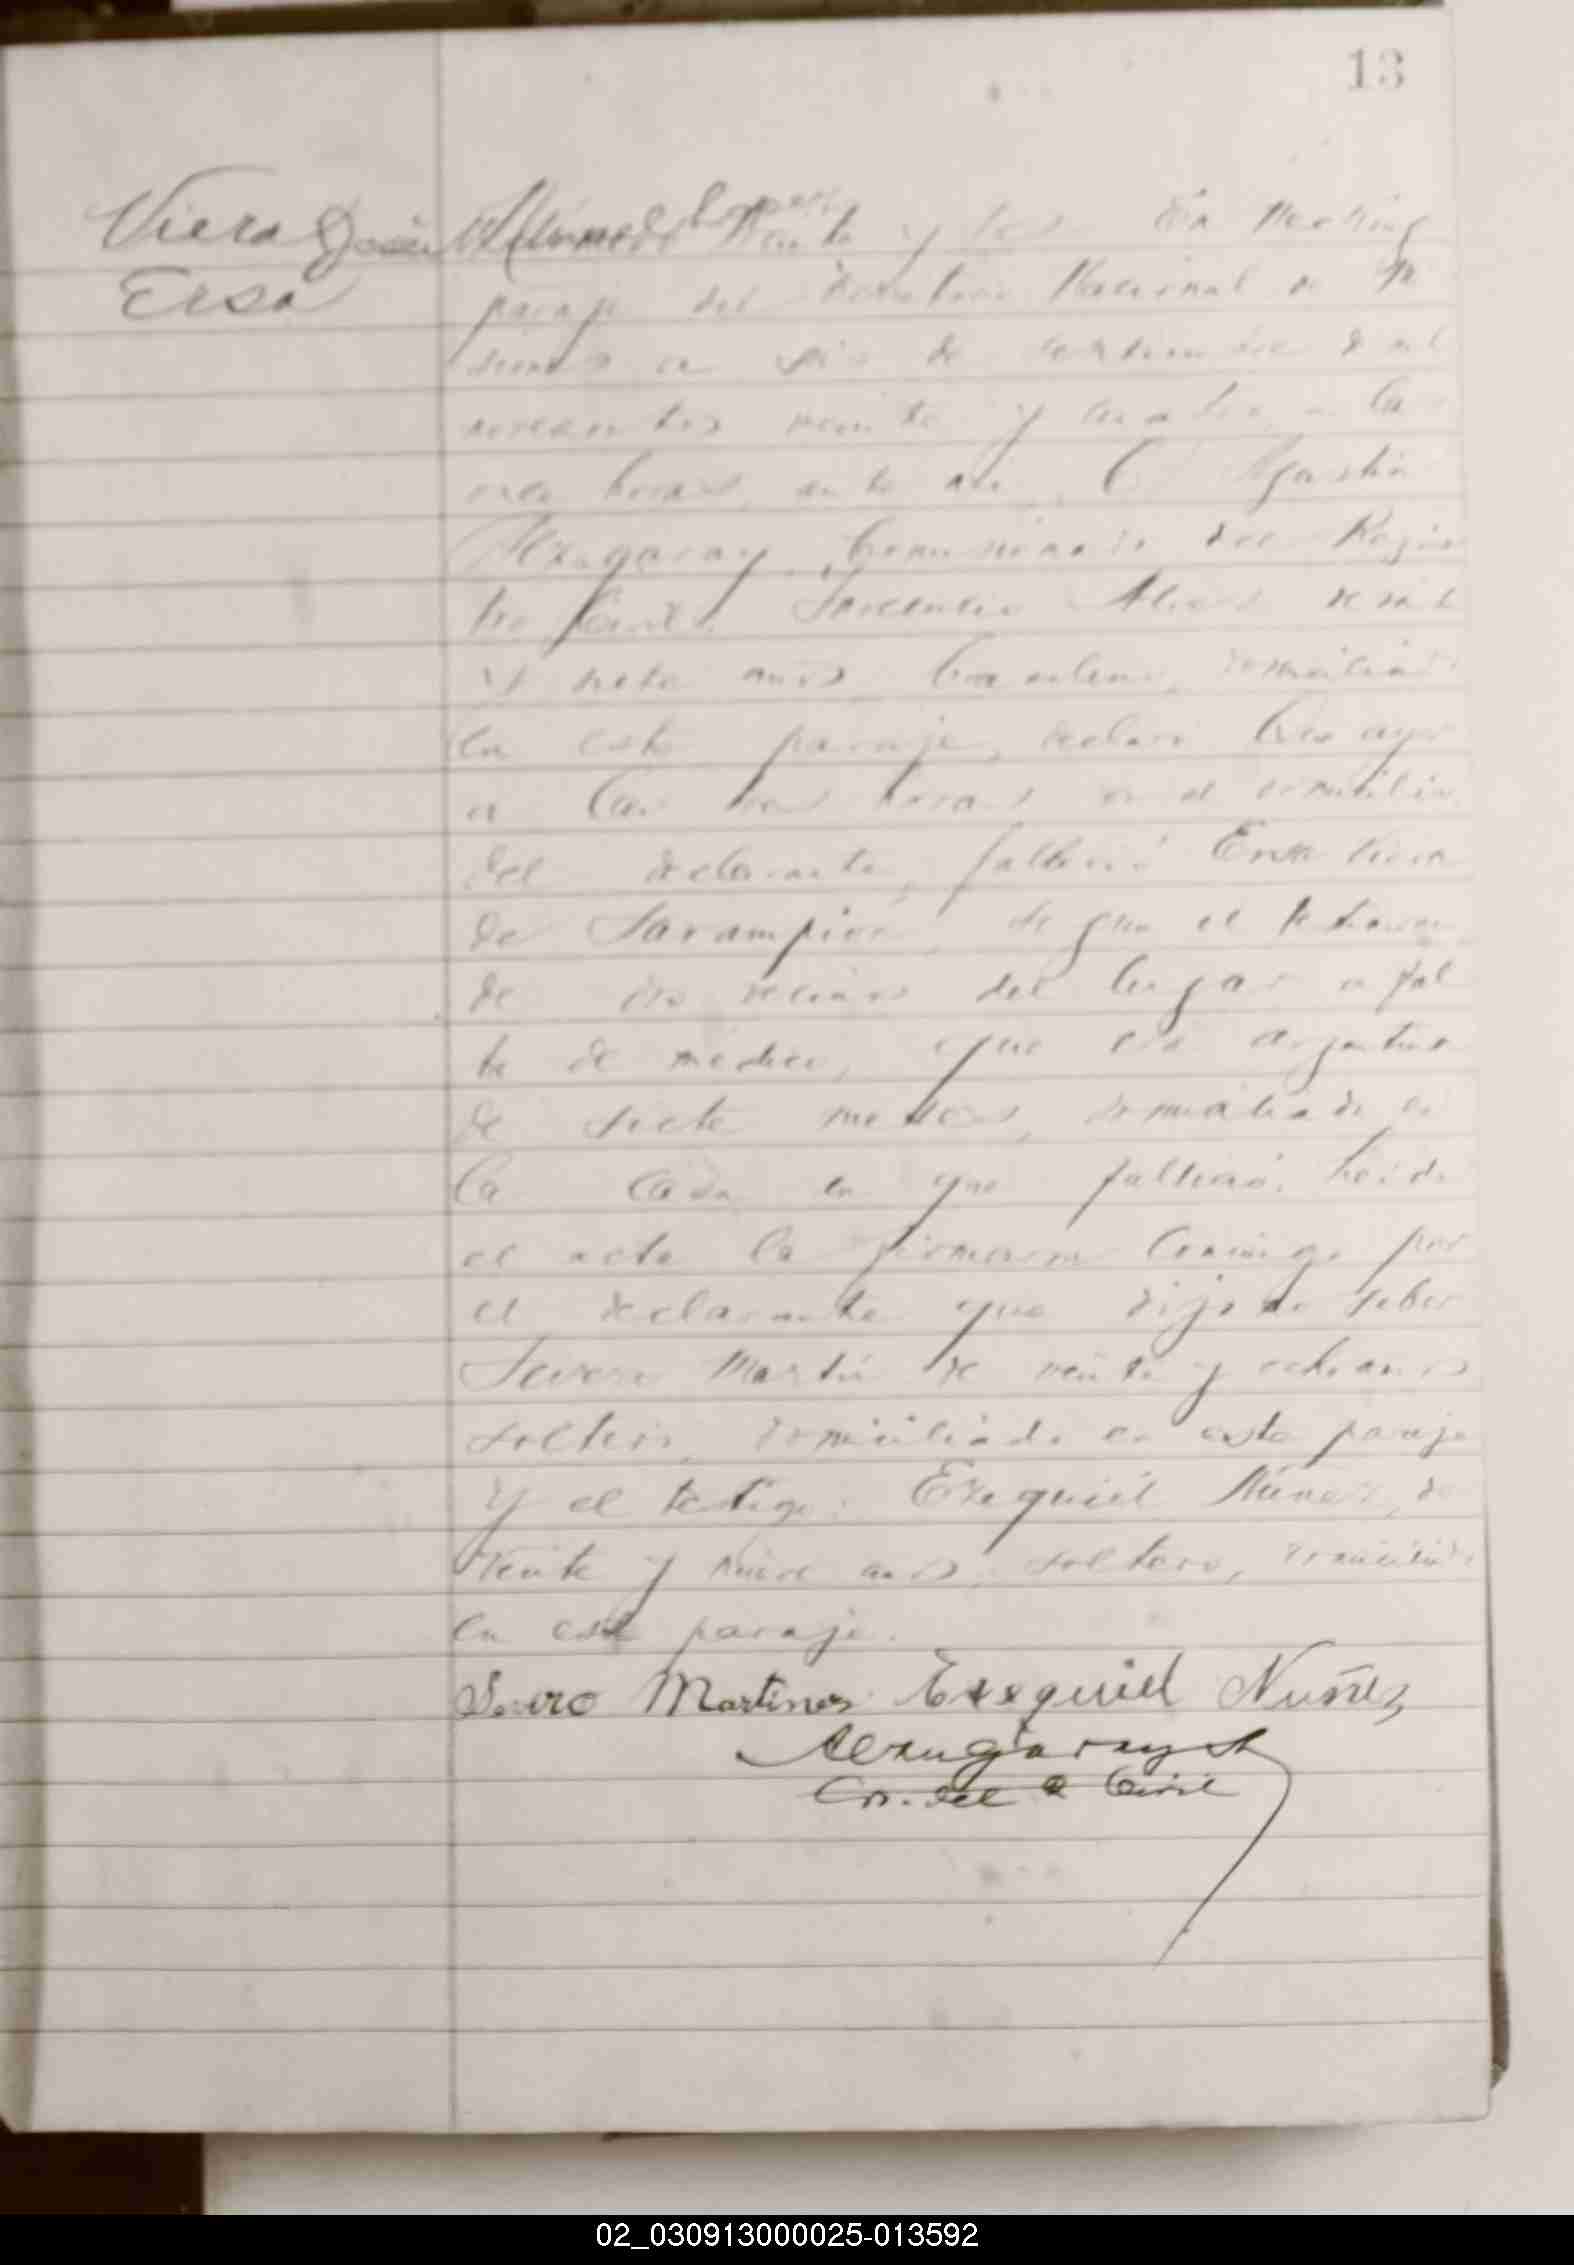 13
Viera
Ersa
Número Treinta y tres En Mártires
paraje del Territorio Nacional de Mi
siones a seis de septiembre de mil
novecientos veinte y cuatro, a las
once horas, ante mi, C Agustin
Alzugaray, Comisionado del Regis
tro Civil, Inocencio de
y siete años, domiciliado
en este paraje, declaró Que ayer
a las tres horas en el domicilio
del declarante, falleció Ersa Viera
de Sarampion, segun el testimonio
de dos vecinos del lugar a fal
ta de médico, que era argentina
de siete meses, domiciliada en
la casa en que falleció. Leida
el acta la firmaron conmigo por
el declarante que dijo no saber
Severo Martin de veinte y ocho años
soltero, domiciliado en este paraje
y el testigo: Ezequiel Núñez, de
veinte y nueve años, soltero, domiciliado
en este paraje.
Severo Martinez Ezequiel Nuñez
Alzugaray
Co. del R Civil
02_030913000025-013592